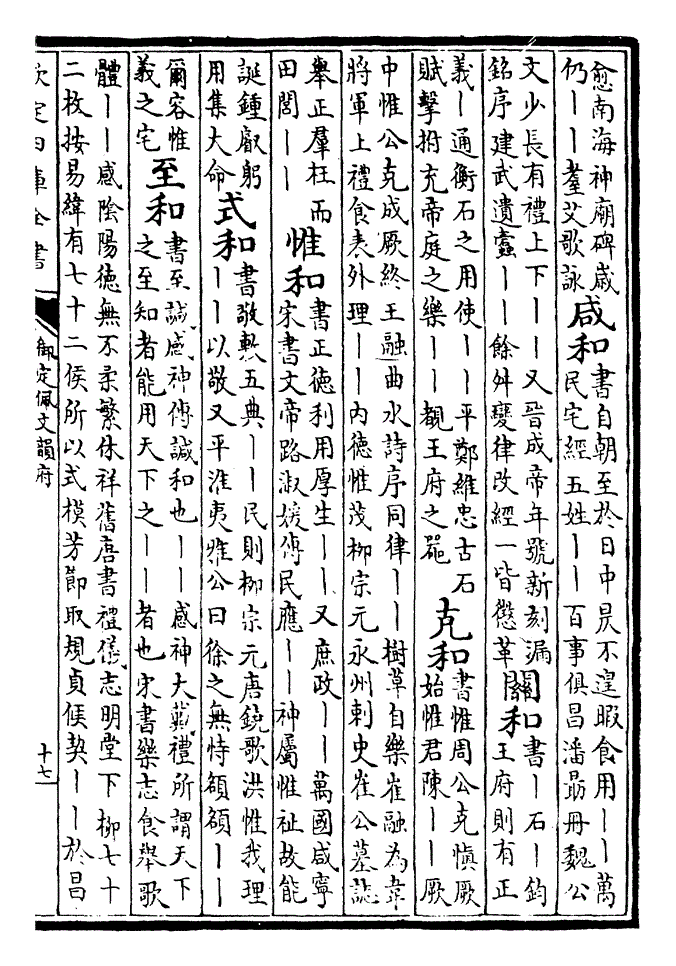 愈南海神廟碑咸
仍丨丨耋艾歌詠
咸和
書自朝至於日中昃不遑暇食用丨丨萬
民宅經五姓丨丨百事俱昌潘勗冊魏公
文少長有禮上下丨丨又晉成帝年號新刻漏
銘序建武遺蠹丨丨餘舛變律改經一皆懲革
關和
書丨石丨鈞
王府則有正
義丨通衡石之用使丨丨平鄭維忠古石
賦擊拊充帝庭之樂丨丨觀王府之器
克和
書惟周公克慎厥
始惟君陳丨丨厥
中惟公克成厥終王融曲水詩序同律丨丨樹草自樂崔融為韋
將軍上禮食表外理丨丨內德惟茂柳宗元永州刺史崔公墓誌
舉正羣枉而
田閭丨丨
惟和
書正德利用厚生丨丨又庶政丨丨萬國咸寧
宋書文帝路淑媛傳民應丨丨神屬惟祉故能
誕鍾叡躬
用集大命
式和
書敬敷五典丨丨民則柳宗元唐鐃歌洪惟我理
丨丨以敬又平淮夷雅公曰徐之無恃額額丨丨
爾容惟
義之宅
至和
書至諴感神傳諴和也丨丨感神大戴禮所謂天下
之至知者能用天下之丨丨者也宋書樂志食舉歌
體丨丨感陰陽德無不柔繁休祥舊唐書禮儀志明堂下柳七十
二枚按易緯有七十二候所以式模芳節取規貞候契丨丨於昌
欽定四庫全書
御定佩文韻府
十七